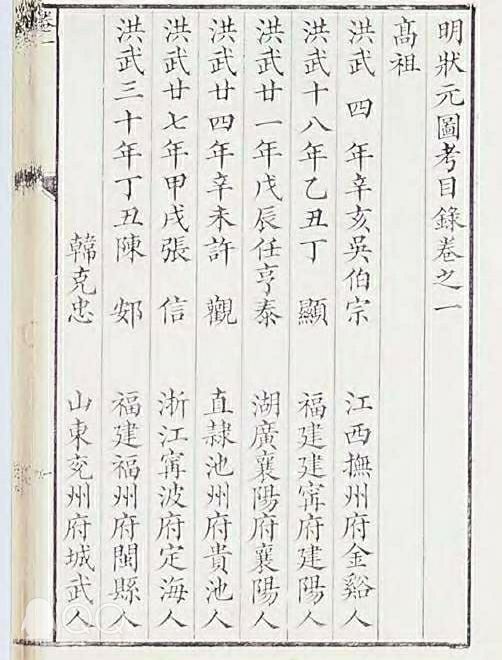 明狀元圖考目錄卷之一
高祖
洪武 四 年辛亥吳伯宗 江西撫州府金谿人
洪武十八年乙丑丁 顯 福建建寗府建陽人
洪武廿一年戊辰任亨泰 湖廣襄陽府襄陽人
洪武廿四年辛未許 觀 直隷池州府貴池人
洪武廿七年甲戌張 信 浙江寗波府定海人
洪武三十年丁丑陳 䢿 福建福州府閩縣人
韓克忠 山東兗州府城武人